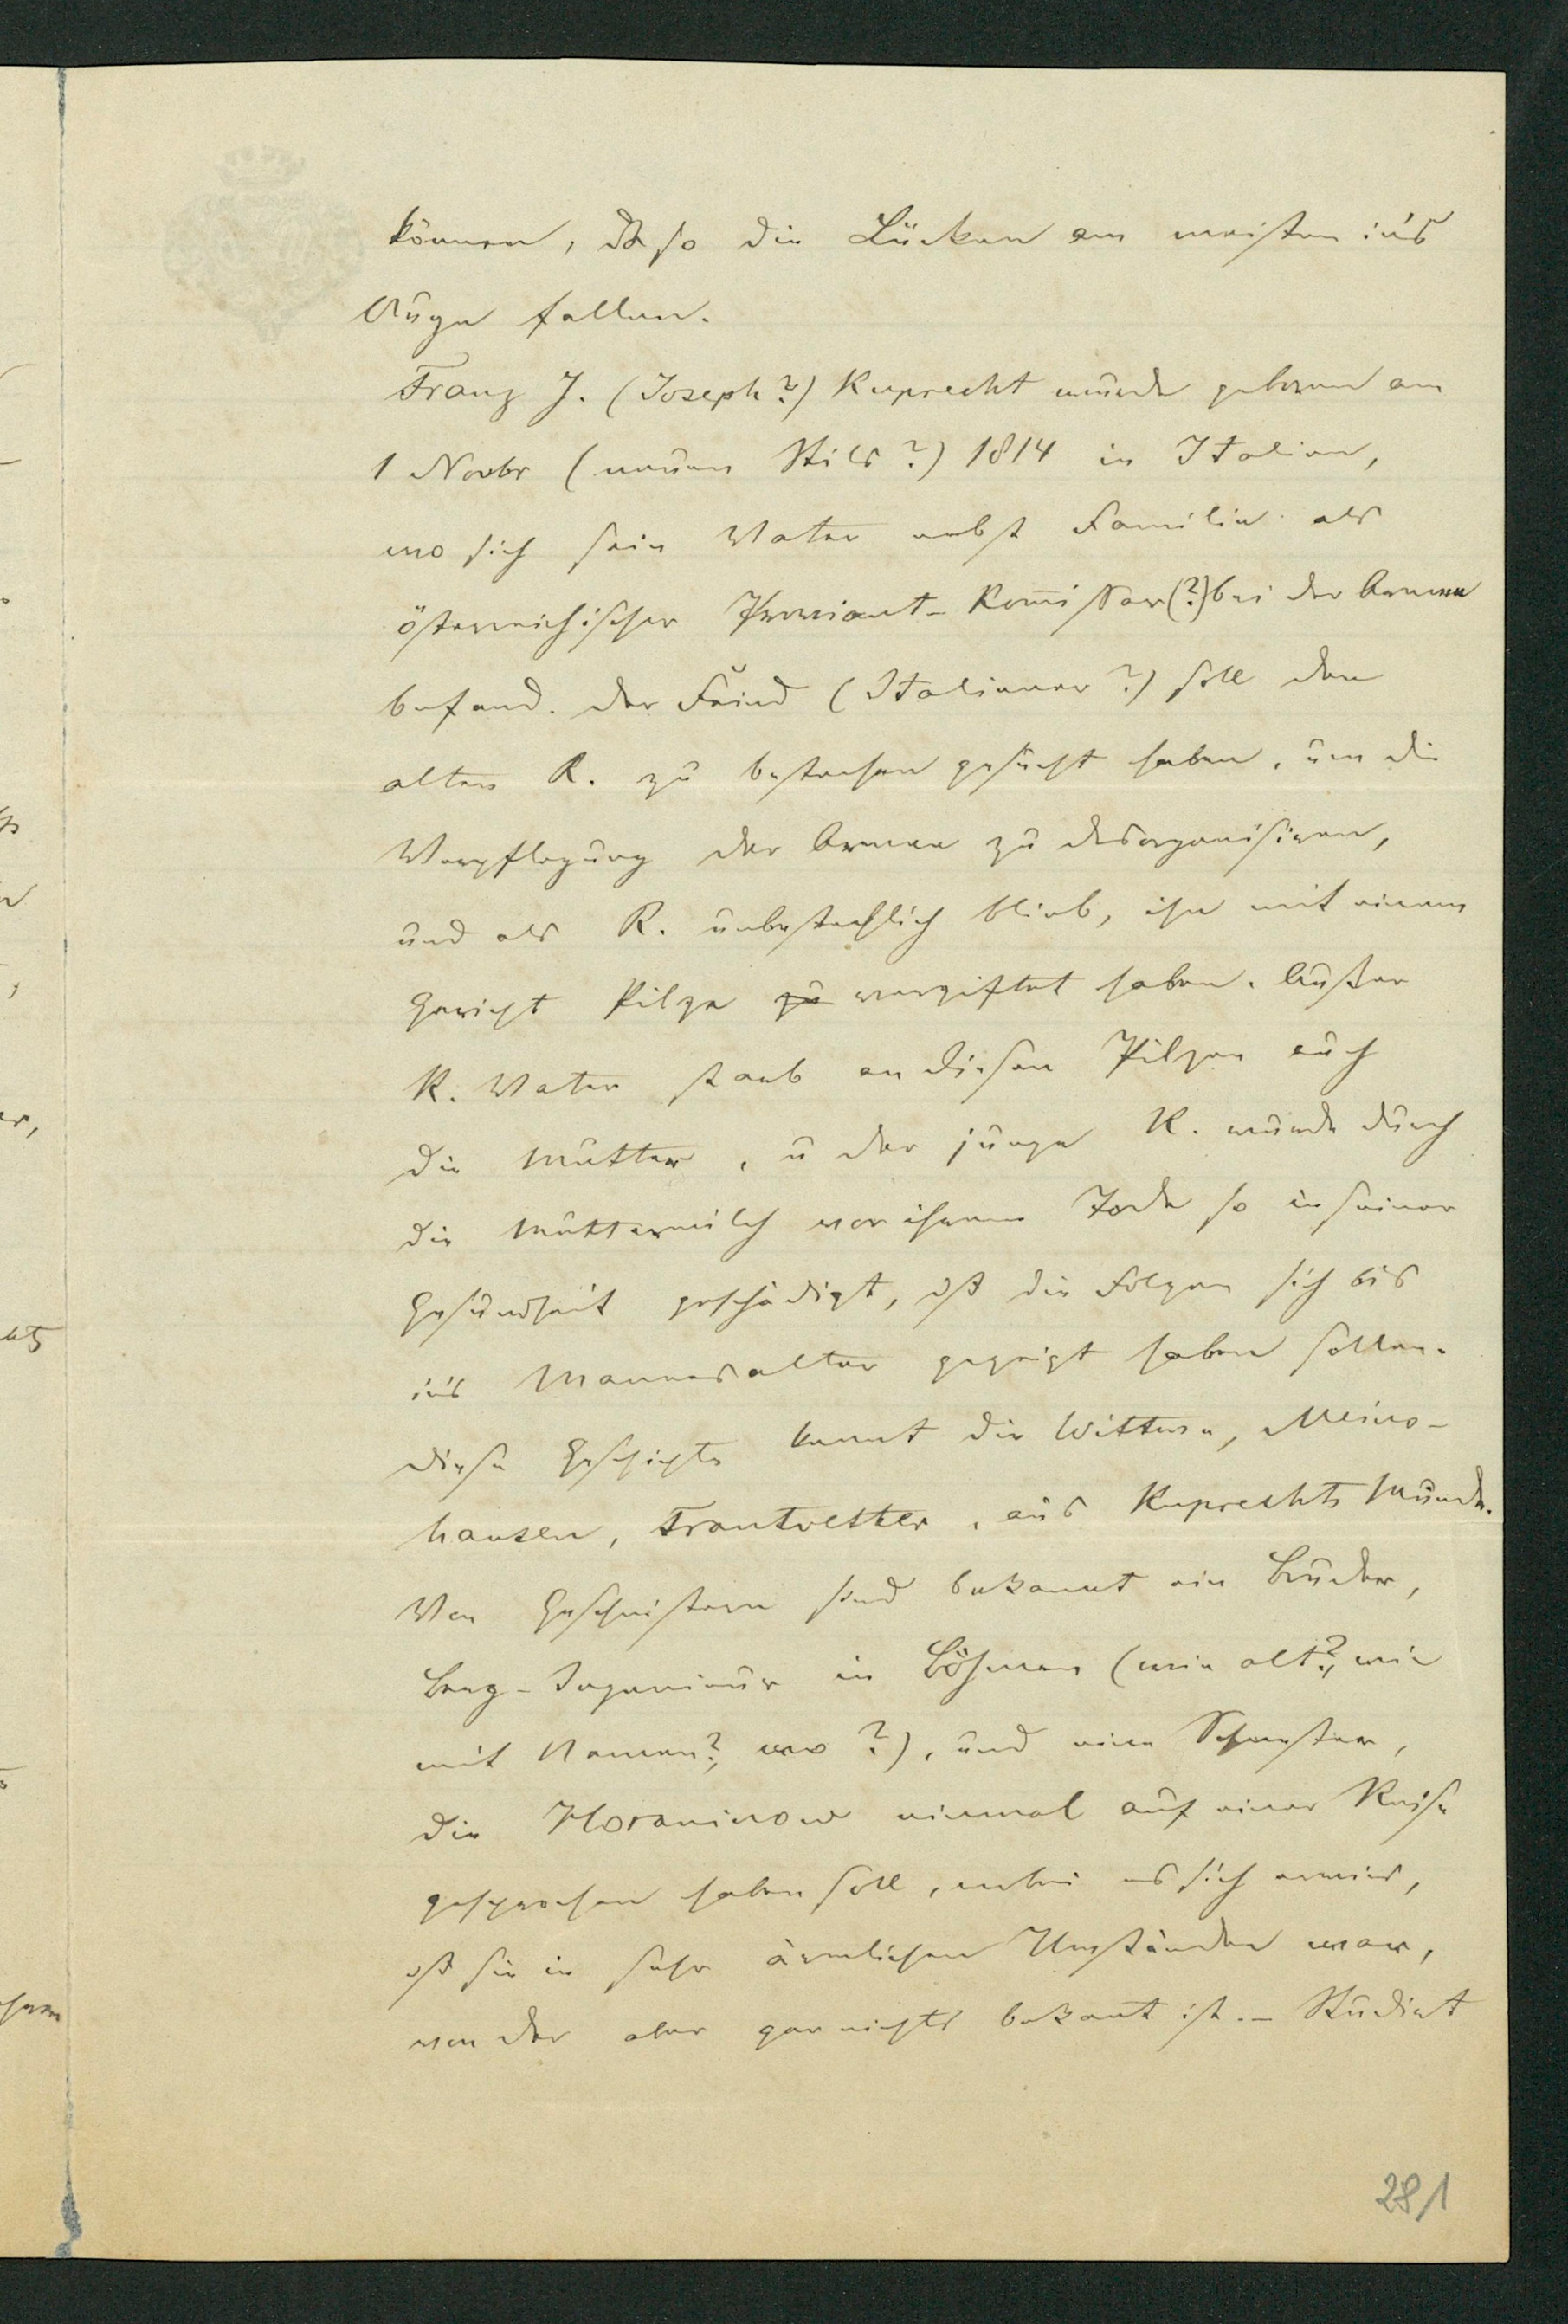 können, da so die Lücken am meisten in's
Auge fallen.
Franz J. (Joseph?) Ruprecht wurde geboren am
1 Novbr (neuen Stils?) 1814 in Italien,
wo sich sein Vater nebst Familie als
österreichischer Proviant-Kom̄issar(?) bei der Armee
befand. Der Feind (Italiener?) soll den
alten R. zu bestechen gesucht haben, um die
Verpflegung der Armee zu desorganisiren,
und als R. unbestechlich blieb, ihn mit einem
Gericht Pilze zu vergiftet haben. Außer
R. Vater starb an diesen Pilzen auch
die Mutter, u der junge R. wurde durch
die Muttermilch vor ihrem Tode so in seiner
Gesundheit geschädigt, dß die Folgen sich bis
in's Mannesalter gezeigt haben sollen.
Diese Geschichte kennt die Wittwe, Meins-
hausen, Trautvetter, aus Ruprechts Munde.
Von Geschwistern sind bekannt ein Bruder,
Berg-Ingenieur in Böhmen (wie alt?, wie
mit Namen?, wo?), und eine Schwester,
die Horaninow einmal auf einer Reise
gesprochen haben soll, wobei es sich erwies,
dß sie in sehr ärmlichen Umständen war,
von der aber gar nichts bekant ist. – Studirt
281